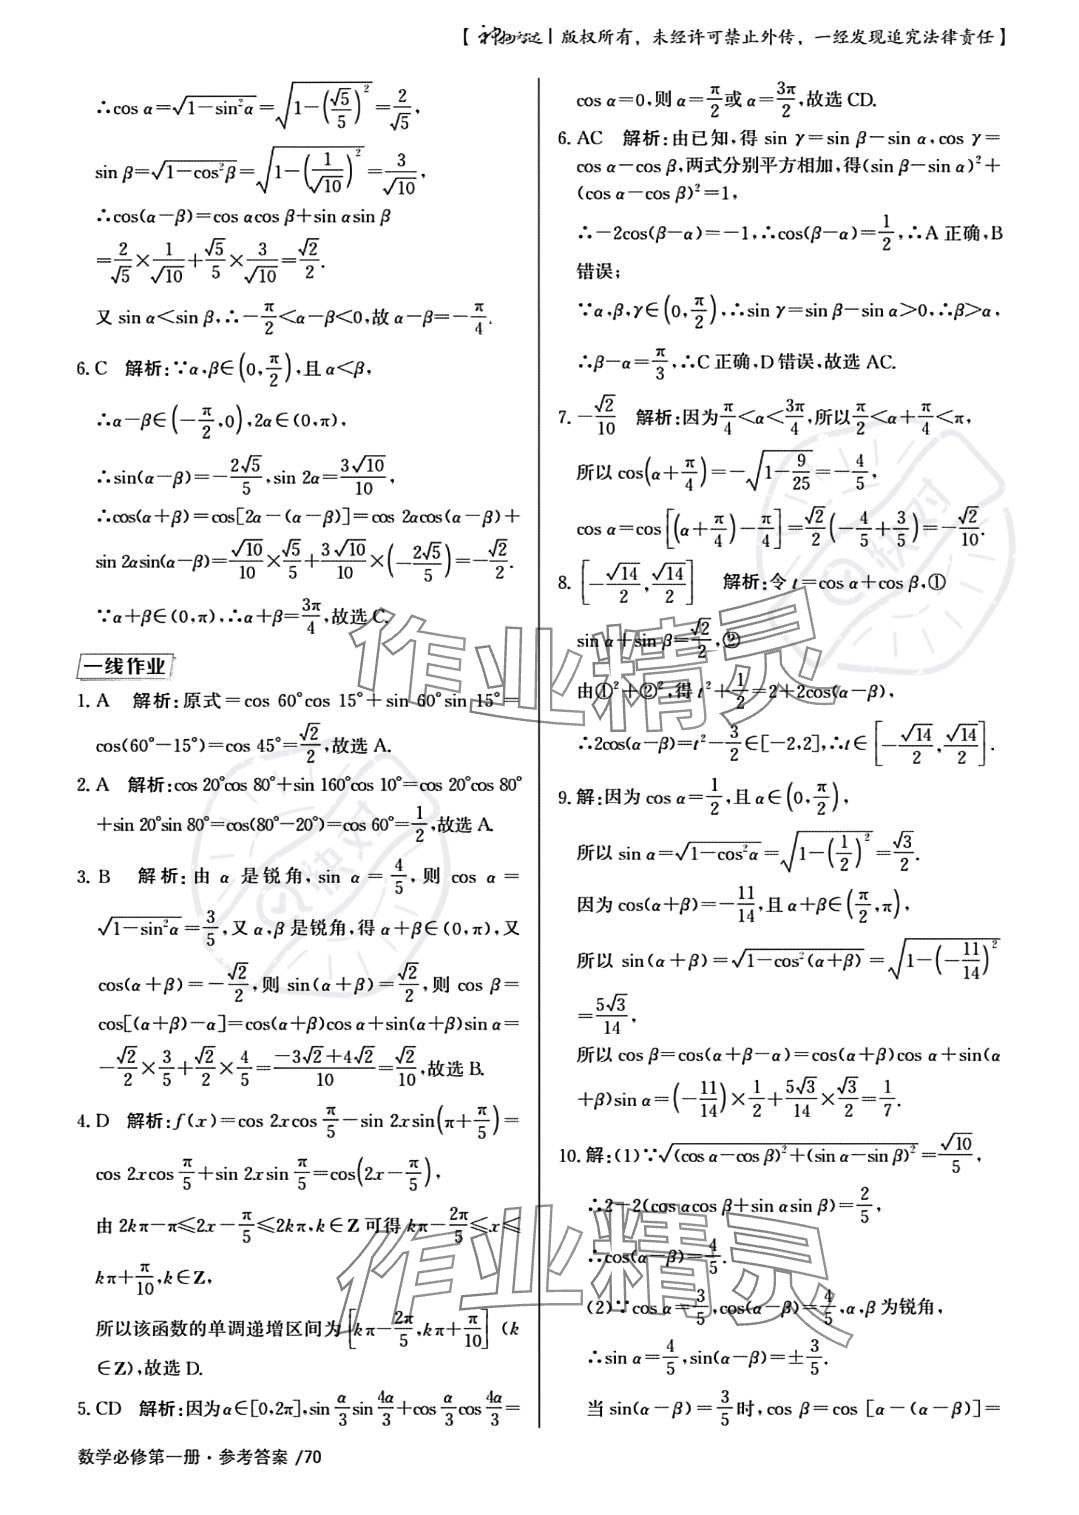 【神拓方达 | 版权所有，未经许可禁止外传，一经发现追究法律责任】
∴cos α=√(1-sin²α)=√(1-(√5/5)²)=2/√5,
sin β=√(1-cos²β)=√(1-(1/√10)²)=3/√10,
∴cos(α-β)=cos αcos β+sin αsin β
=2/√5×1/√10+√5/5×3/√10=√2/2.
又 sin α<sin β,∴-π/2<α-β<0,故 α-β=-π/4.
6. C 解析:∵α,β∈(0,π/2),且 α<β,
∴α-β∈(-π/2,0),2α∈(0,π),
∴sin(α-β)=-2√5/5,sin 2α=3√10/10,
∴cos(α+β)=cos[2α-(α-β)]=cos 2αcos(α-β)+
sin 2αsin(α-β)=√10/10×√5/5+3√10/10×(-2√5/5)=-√2/2.
∵α+β∈(0,π),∴α+β=3π/4,故选 C.
一线作业
1. A 解析:原式=cos 60°cos 15°+sin 60°sin 15°=
cos(60°-15°)=cos 45°=√2/2,故选 A.
2. A 解析:cos 20°cos 80°+sin 160°cos 10°=cos 20°cos 80°
+sin 20°sin 80°=cos(80°-20°)=cos 60°=1/2,故选 A.
3. B 解析:由 α 是锐角,sin α=4/5,则 cos α=
√(1-sin²α)=3/5,又 α,β 是锐角,得 α+β∈(0,π),又
cos(α+β)=-√2/2,则 sin(α+β)=√2/2,则 cos β=
cos[(α+β)-α]=cos(α+β)cos α+sin(α+β)sin α=
-√2/2×3/5+√2/2×4/5=(-3√2+4√2)/10=√2/10,故选 B.
4. D 解析:f(x)=cos 2xcos π/5-sin 2xsin(π+π/5)=
cos 2xcos π/5+sin 2xsin π/5=cos(2x-π/5),
由 2kπ-π≤2x-π/5≤2kπ,k∈Z 可得 kπ-2π/5≤x≤
kπ+π/10,k∈Z,
所以该函数的单调递增区间为[kπ-2π/5,kπ+π/10](k
∈Z),故选 D.
5. CD 解析:因为 α∈[0,2π],sin α/3 sin 4α/3+cos α/3 cos 4α/3=
数学必修第一册·参考答案 /70
cos α=0,则 α=π/2或 α=3π/2,故选 CD.
6. AC 解析:由已知,得 sin γ=sin β-sin α,cos γ=
cos α-cos β,两式分别平方相加,得(sin β-sin α)²+
(cos α-cos β)²=1,
∴-2cos(β-α)=-1,∴cos(β-α)=1/2,∴A 正确,B
错误;
∵α,β,γ∈(0,π/2),∴sin γ=sin β-sin α>0,∴β>α,
∴β-α=π/3,∴C 正确,D 错误,故选 AC.
7. -√2/10 解析:因为π/4<α<3π/4,所以π/2<α+π/4<π,
所以 cos(α+π/4)=-√(1-9/25)=-4/5,
cos α=cos[(α+π/4)-π/4]=√2/2(-4/5+3/5)=-√2/10.
8. [-√14/2,√14/2] 解析:令 t=cos α+cos β,①
sin α+sin β=√2/2,②
由①²+②²,得 t²+1/2=2+2cos(α-β),
∴2cos(α-β)=t²-3/2∈[-2,2],∴t∈[-√14/2,√14/2].
9. 解:因为 cos α=1/2,且 α∈(0,π/2),
所以 sin α=√(1-cos²α)=√(1-(1/2)²)=√3/2.
因为 cos(α+β)=-11/14,且 α+β∈(π/2,π),
所以 sin(α+β)=√(1-cos²(α+β))=√(1-(-11/14)²)
=5√3/14,
所以 cos β=cos(α+β-α)=cos(α+β)cos α+sin(α
+β)sin α=(-11/14)×1/2+5√3/14×√3/2=1/7.
10. 解:(1)∵√((cos α-cos β)²+(sin α-sin β)²)=√10/5,
∴2-2(cos αcos β+sin αsin β)=2/5,
∴cos(α-β)=4/5.
(2)∵cos α=3/5,cos(α-β)=4/5,α,β 为锐角,
∴sin α=4/5,sin(α-β)=±3/5.
当 sin(α-β)=3/5时,cos β=cos [α-(α-β)]=
作业精灵
作业精灵
快对
快对